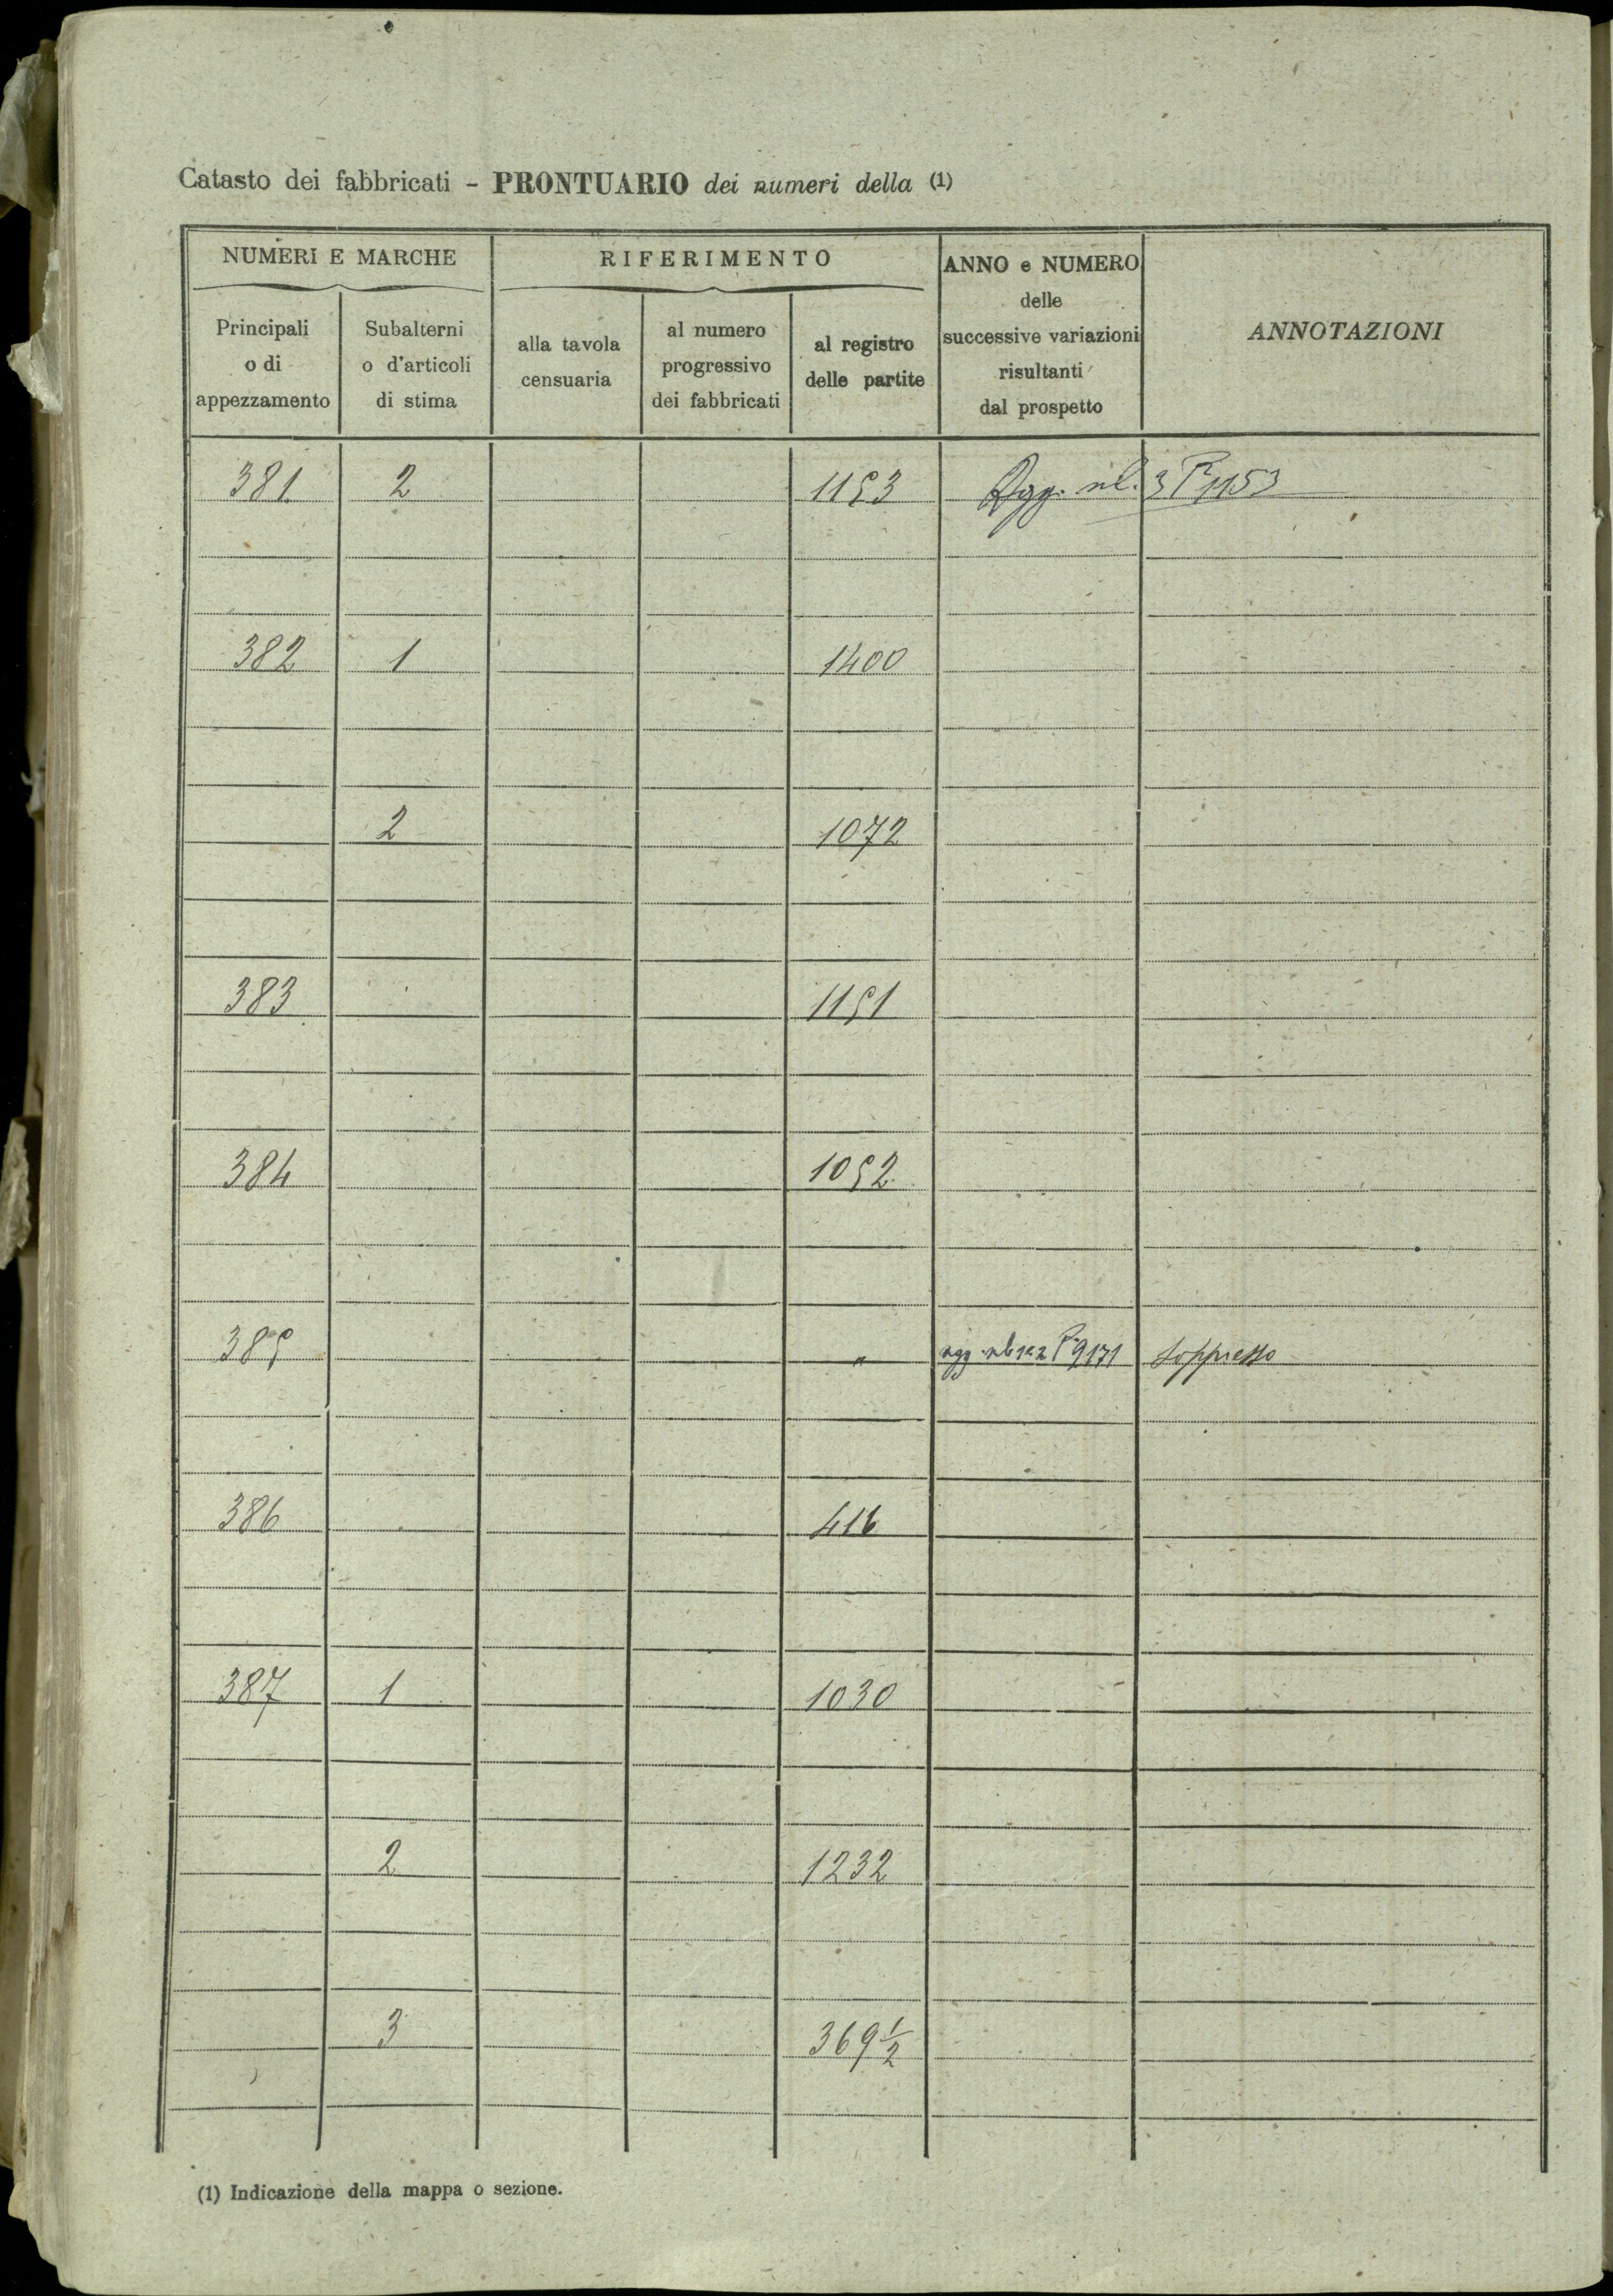 Catasto dei fabbricati - PRONTUARIO dei numeri della (1)
NUMERI E MARCHE RIFERIMENTO ANNO e NUMERO delle successive variazioni risultanti dal prospetto ANNOTAZIONI
Principali o di appezzamento
Subalterni o d'articoli di stima
alla tavola censuaria
al numero progressivo dei fabbricati
al registro delle partite
381 2 1153 Agg. sub. 3 Pª 1153
382 1 1400
2 1072
383 1151
384 1052
385 " agg. sub 1 e 2 9171 Soppresso
386 416
387 1 1030
2 1232
3 369 1/2
(1) Indicazione della mappa o sezione.